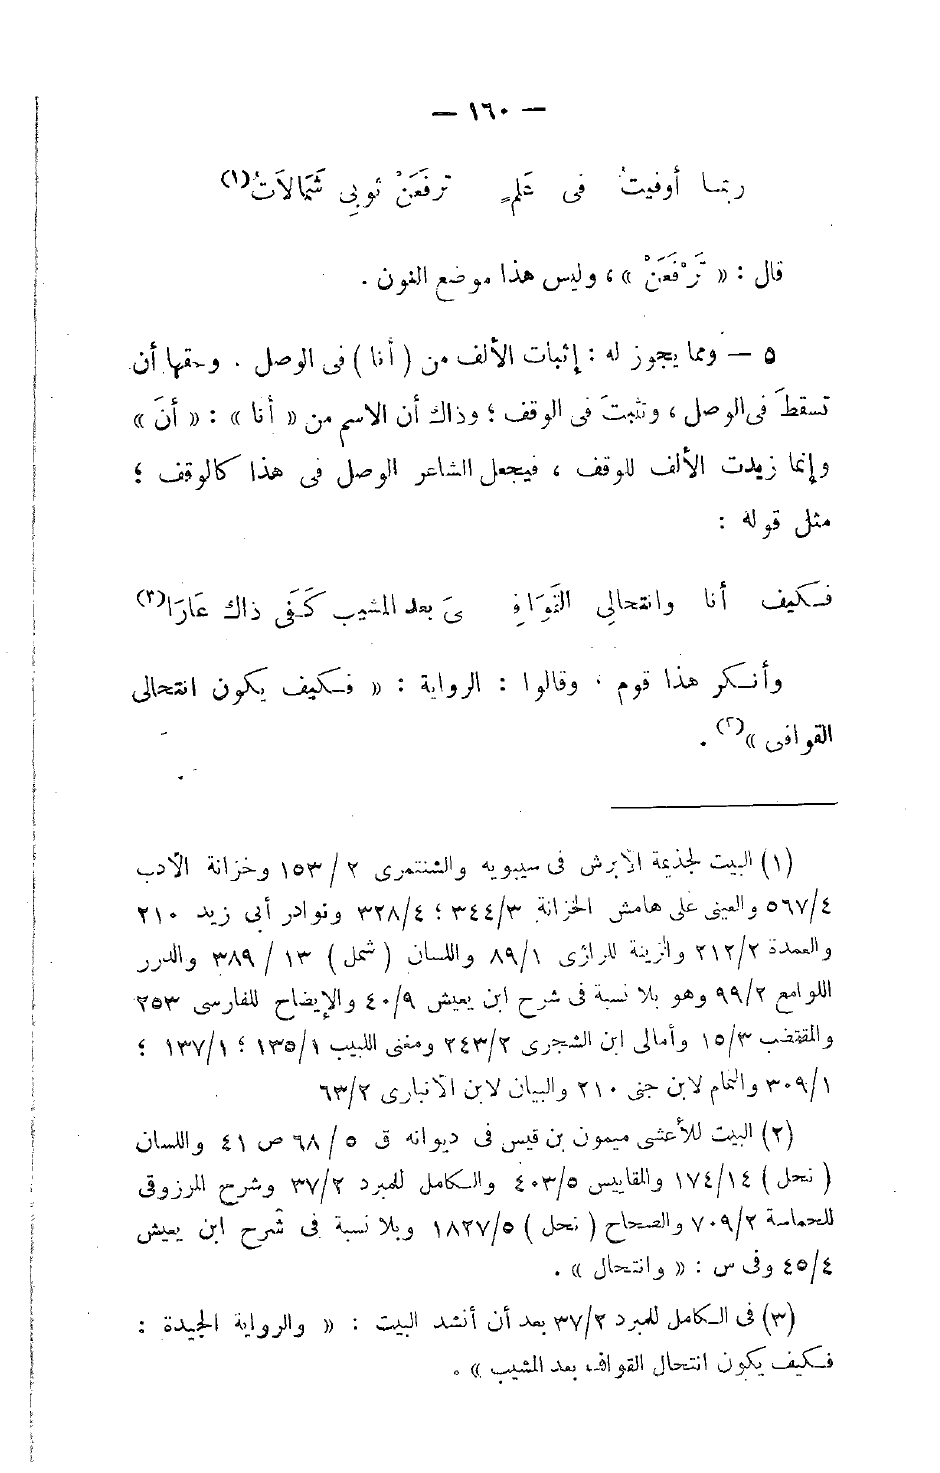 — ١٦٠ —
ربما أوفيتُ فى عَلمٍ ترفَعَنْ ثوبِى شَمَالاَتُ(١)
قال : « تَرْفَعَنْ » ، وليس هذا موضع النون .
٥ — ومما يجوز له : إثبات الألف من ( أنا ) فى الوصل . وحقها أن
تسقطَ فى الوصل ، وتثبتَ فى الوقف ؛ وذاك أن الاسم من « أنا » : « أنَ »
وإنما زيدت الألف للوقف ، فيجعل الشاعر الوصل فى هذا كالوقف ؛
مثل قوله :
فكيف أنا وانتحالِى القَوَافِ ىَ بعد المشيب كَفَى ذاك عَارَا(٢)
وأنكر هذا قوم . وقالوا : الرواية : « فكيف يكون انتحالى
القوافى »(٣) .
(١) البيت لجذيمة الأبرش فى سيبويه والشنتمرى ٢ / ١٥٣ وخزانة الأدب
٥٦٧/٤ والعينى على هامش الخزانة ٣٤٤/٣ ؛ ٣٢٨/٤ ونوادر أبى زيد ٢١٠
والعمدة ٢١٢/٢ والزينة للرازى ٨٩/١ واللسان ( شمل ) ١٣ / ٣٨٩ والدرر
اللوامع ٩٩/٢ وهو بلا نسبة فى شرح ابن يعيش ٤٠/٩ والإيضاح للفارسى ٢٥٣
والمقتضب ١٥/٣ وأمالى ابن الشجرى ٢٤٣/٢ ومغنى اللبيب ١٣٥/١ ؛ ١٣٧/١ ؛
٣٠٩/١ والتمام لابن جنى ٢١٠ والبيان لابن الأنبارى ٦٣/٢
(٢) البيت للأعشى ميمون بن قيس فى ديوانه ق ٥ / ٦٨ ص ٤١ واللسان
( نحل ) ١٧٤/١٤ والمقاييس ٤٠٣/٥ والكامل للمبرد ٣٧/٢ وشرح المرزوقى
للحماسة ٧٠٩/٢ والصحاح ( نحل ) ١٨٢٧/٥ وبلا نسبة فى شرح ابن يعيش
٤٥/٤ وفى س : « وانتحال » .
(٣) فى الكامل للمبرد ٣٧/٢ بعد أن أنشد البيت : « والرواية الجيدة :
فكيف يكون انتحال القواف بعد المشيب » .